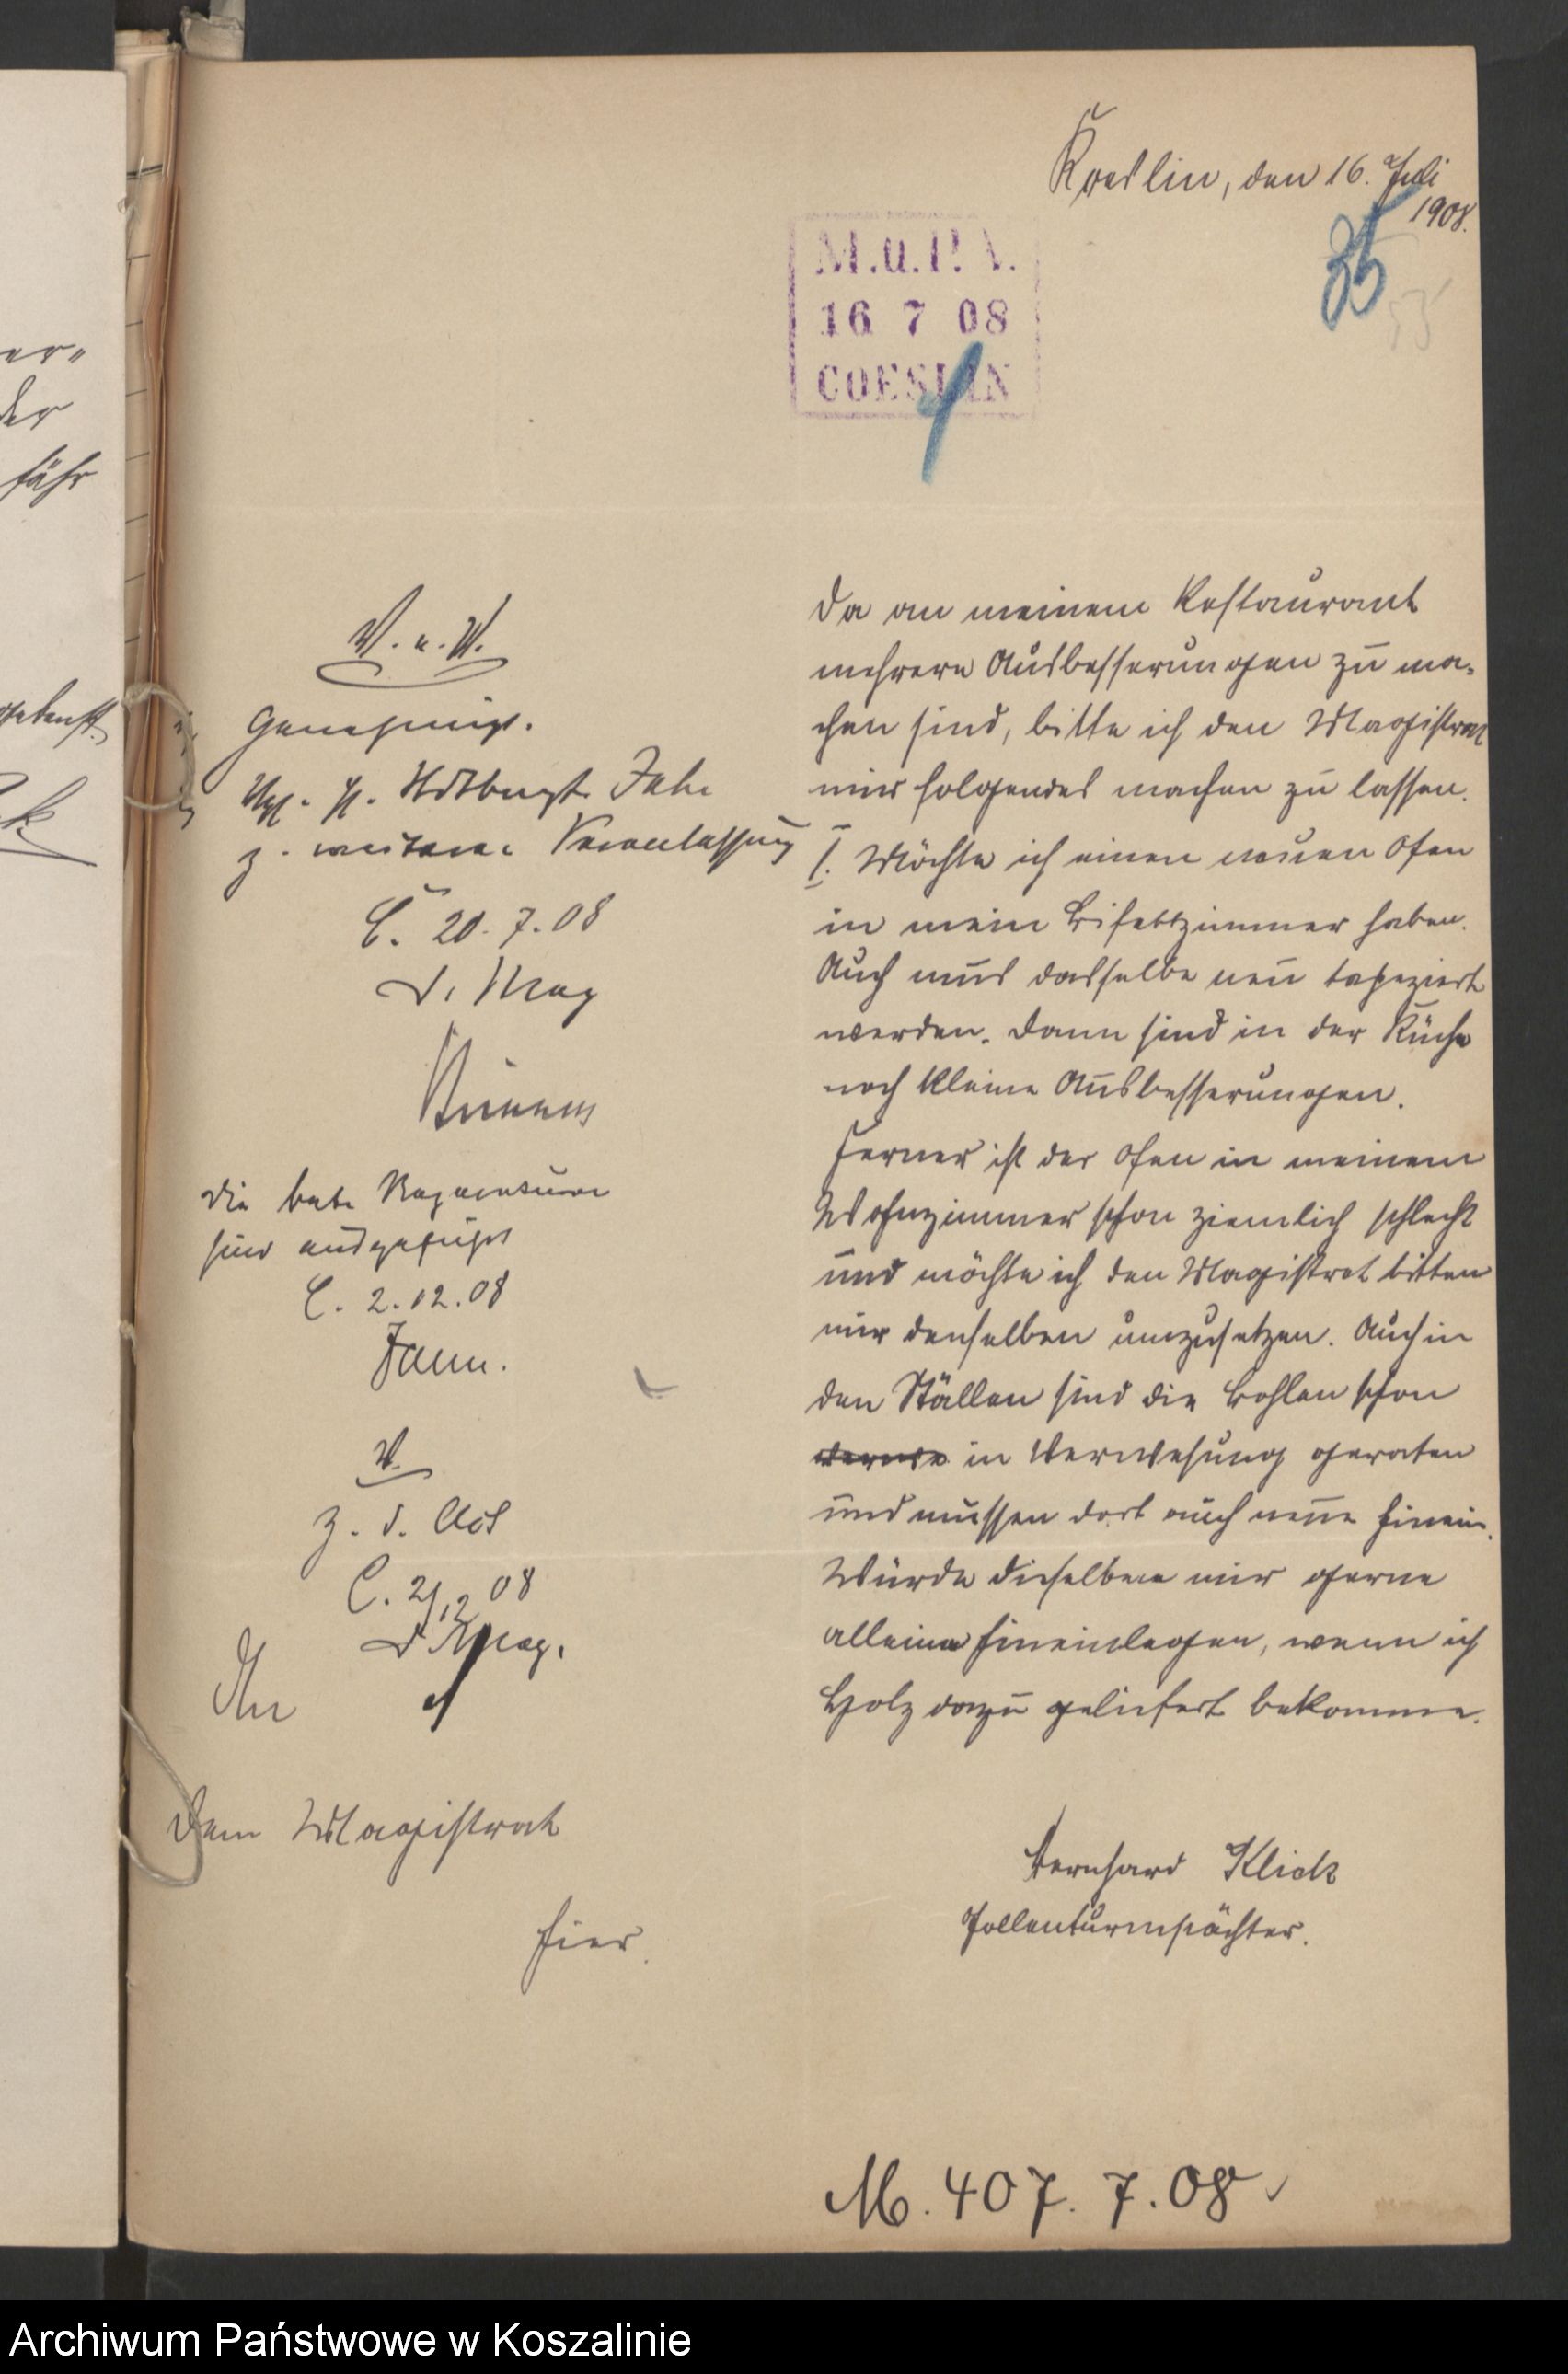 er=
der
fähr
Koeslin, den 16. Juli
1908.
35
35
M.u.P.V.
16 7 08
COESLIN
Da an meinem Restaurant
mehrere Ausbesserungen zu ma-
chen sind, bitte ich den Magistrat
mir folgendes machen zu lassen.
I. Möchte ich einen neuen Ofen
in mein Büfettzimmer haben.
Auch mus dasselbe neu tapeziert
werden. Dann sind in der Küche
noch kleine Ausbesserungen.
Ferner ist der Ofen in meinem
Wohnzimmer schon ziemlich schlecht
und möchte ich den Magistrat bitten
mir denselben umzusetzen. Auch in
den Ställen sind die Bohlen schon
in Verwesung geraten
und mussen dort auch neue hinein.
Würde dieselben mir gerne
alleine hineinlegen, wenn ich
Holz dazu geliefert bekomme.
Bernhard Klick
Gollenturmpächter.
V. u. W.
Genehmigt.
H.
z. weiteren Veranlassung
C. 20.7.08
D. Mag
Die beh. Reparaturen
sind ausgeführt
C. 2.12.08
V.
z. d. Act
C. 2/12 08
D. Mag.
An
den Magistrat
hier.
M. 407. 7. 08
Archiwum Państwowe w Koszalinie